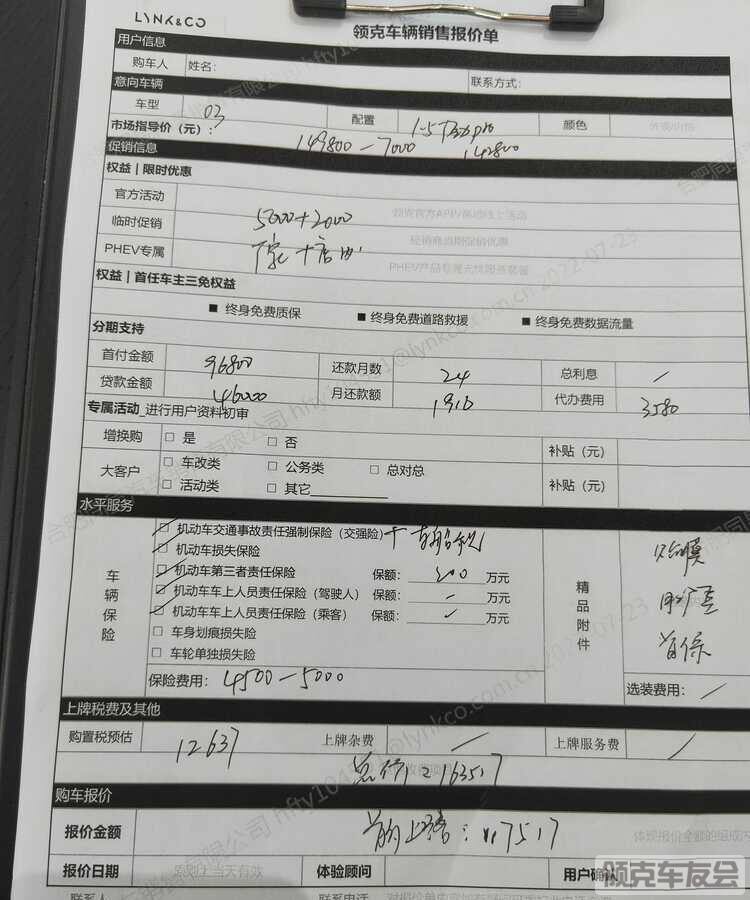 LYNK&CO
领克车辆销售报价单
用户信息
购车人 姓名: 联系方式:
意向车辆
车型 03 配置 颜色
市场指导价（元）: 149800-7000 142800
促销信息
权益 | 限时优惠
官方活动
临时促销 5000+2000 经销商当期促销优惠
PHEV专属 PHEV产品专属无忧服务套餐
权益 | 首任车主三免权益
■ 终身免费质保 ■ 终身免费道路救援 ■ 终身免费数据流量
分期支持
首付金额 96800 还款月数 24 总利息 /
贷款金额 46000 月还款额 1916 代办费用 3580
专属活动_进行用户资料初审
增换购 □ 是 □ 否 补贴（元）
大客户 □ 车改类 □ 公务类 □ 总对总
□ 活动类 □ 其它 补贴（元）
水平服务
车辆保险
机动车交通事故责任强制保险（交强险）+
机动车损失保险
机动车第三者责任保险 保额: 300 万元
机动车车上人员责任保险（驾驶人） 保额: 万元
机动车车上人员责任保险（乘客） 保额: ✓ 万元
□ 车身划痕损失险
□ 车轮单独损失险
保险费用: 4500-5000
精品附件
贴膜
脚垫
首保
选装费用: /
上牌税费及其他
购置税预估 12637 上牌杂费 / 上牌服务费 /
163517
购车报价
报价金额 117517
报价日期 原则上当天有效 体验顾问 用户确认
联系人 联系电话
2022-07-23
领克车友会